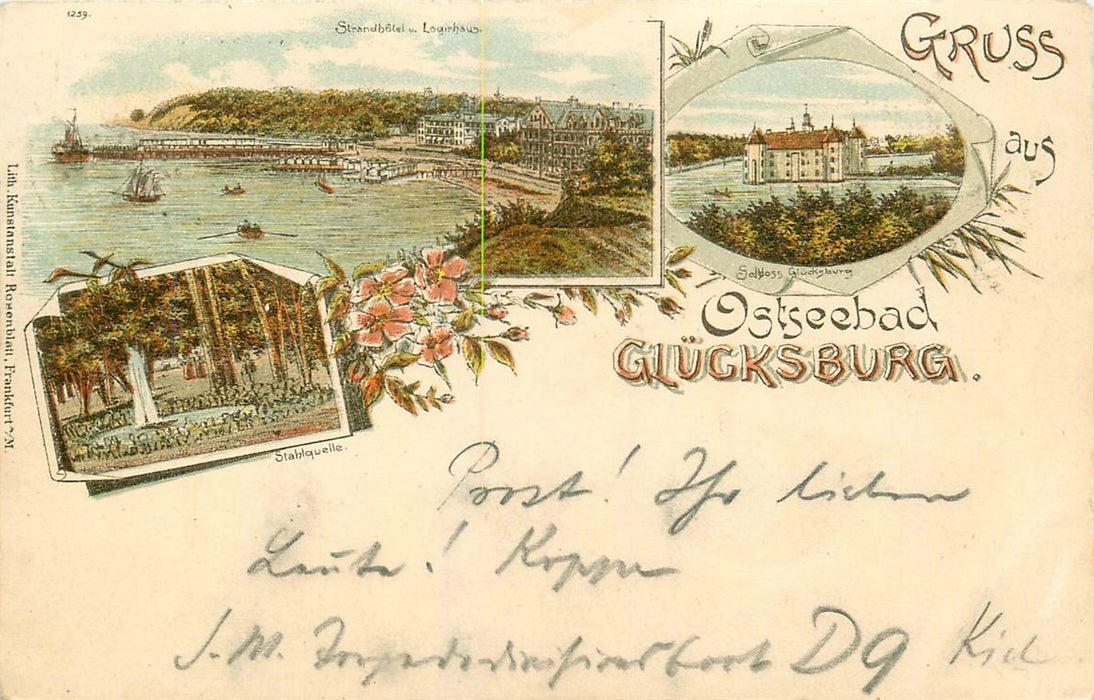 1259.
Strandhôtel u. Logirhaus.
GRUSS
aus
Schloss Glücksburg
Ostseebad
GLÜCKSBURG.
Stahlquelle.
Lith. Kunstanstalt Rosenblatt, Frankfurt a/M.
Prost! Ihr lieben
Leute! Koppe
S. M. Torpedodivisionsboot D9 Kiel